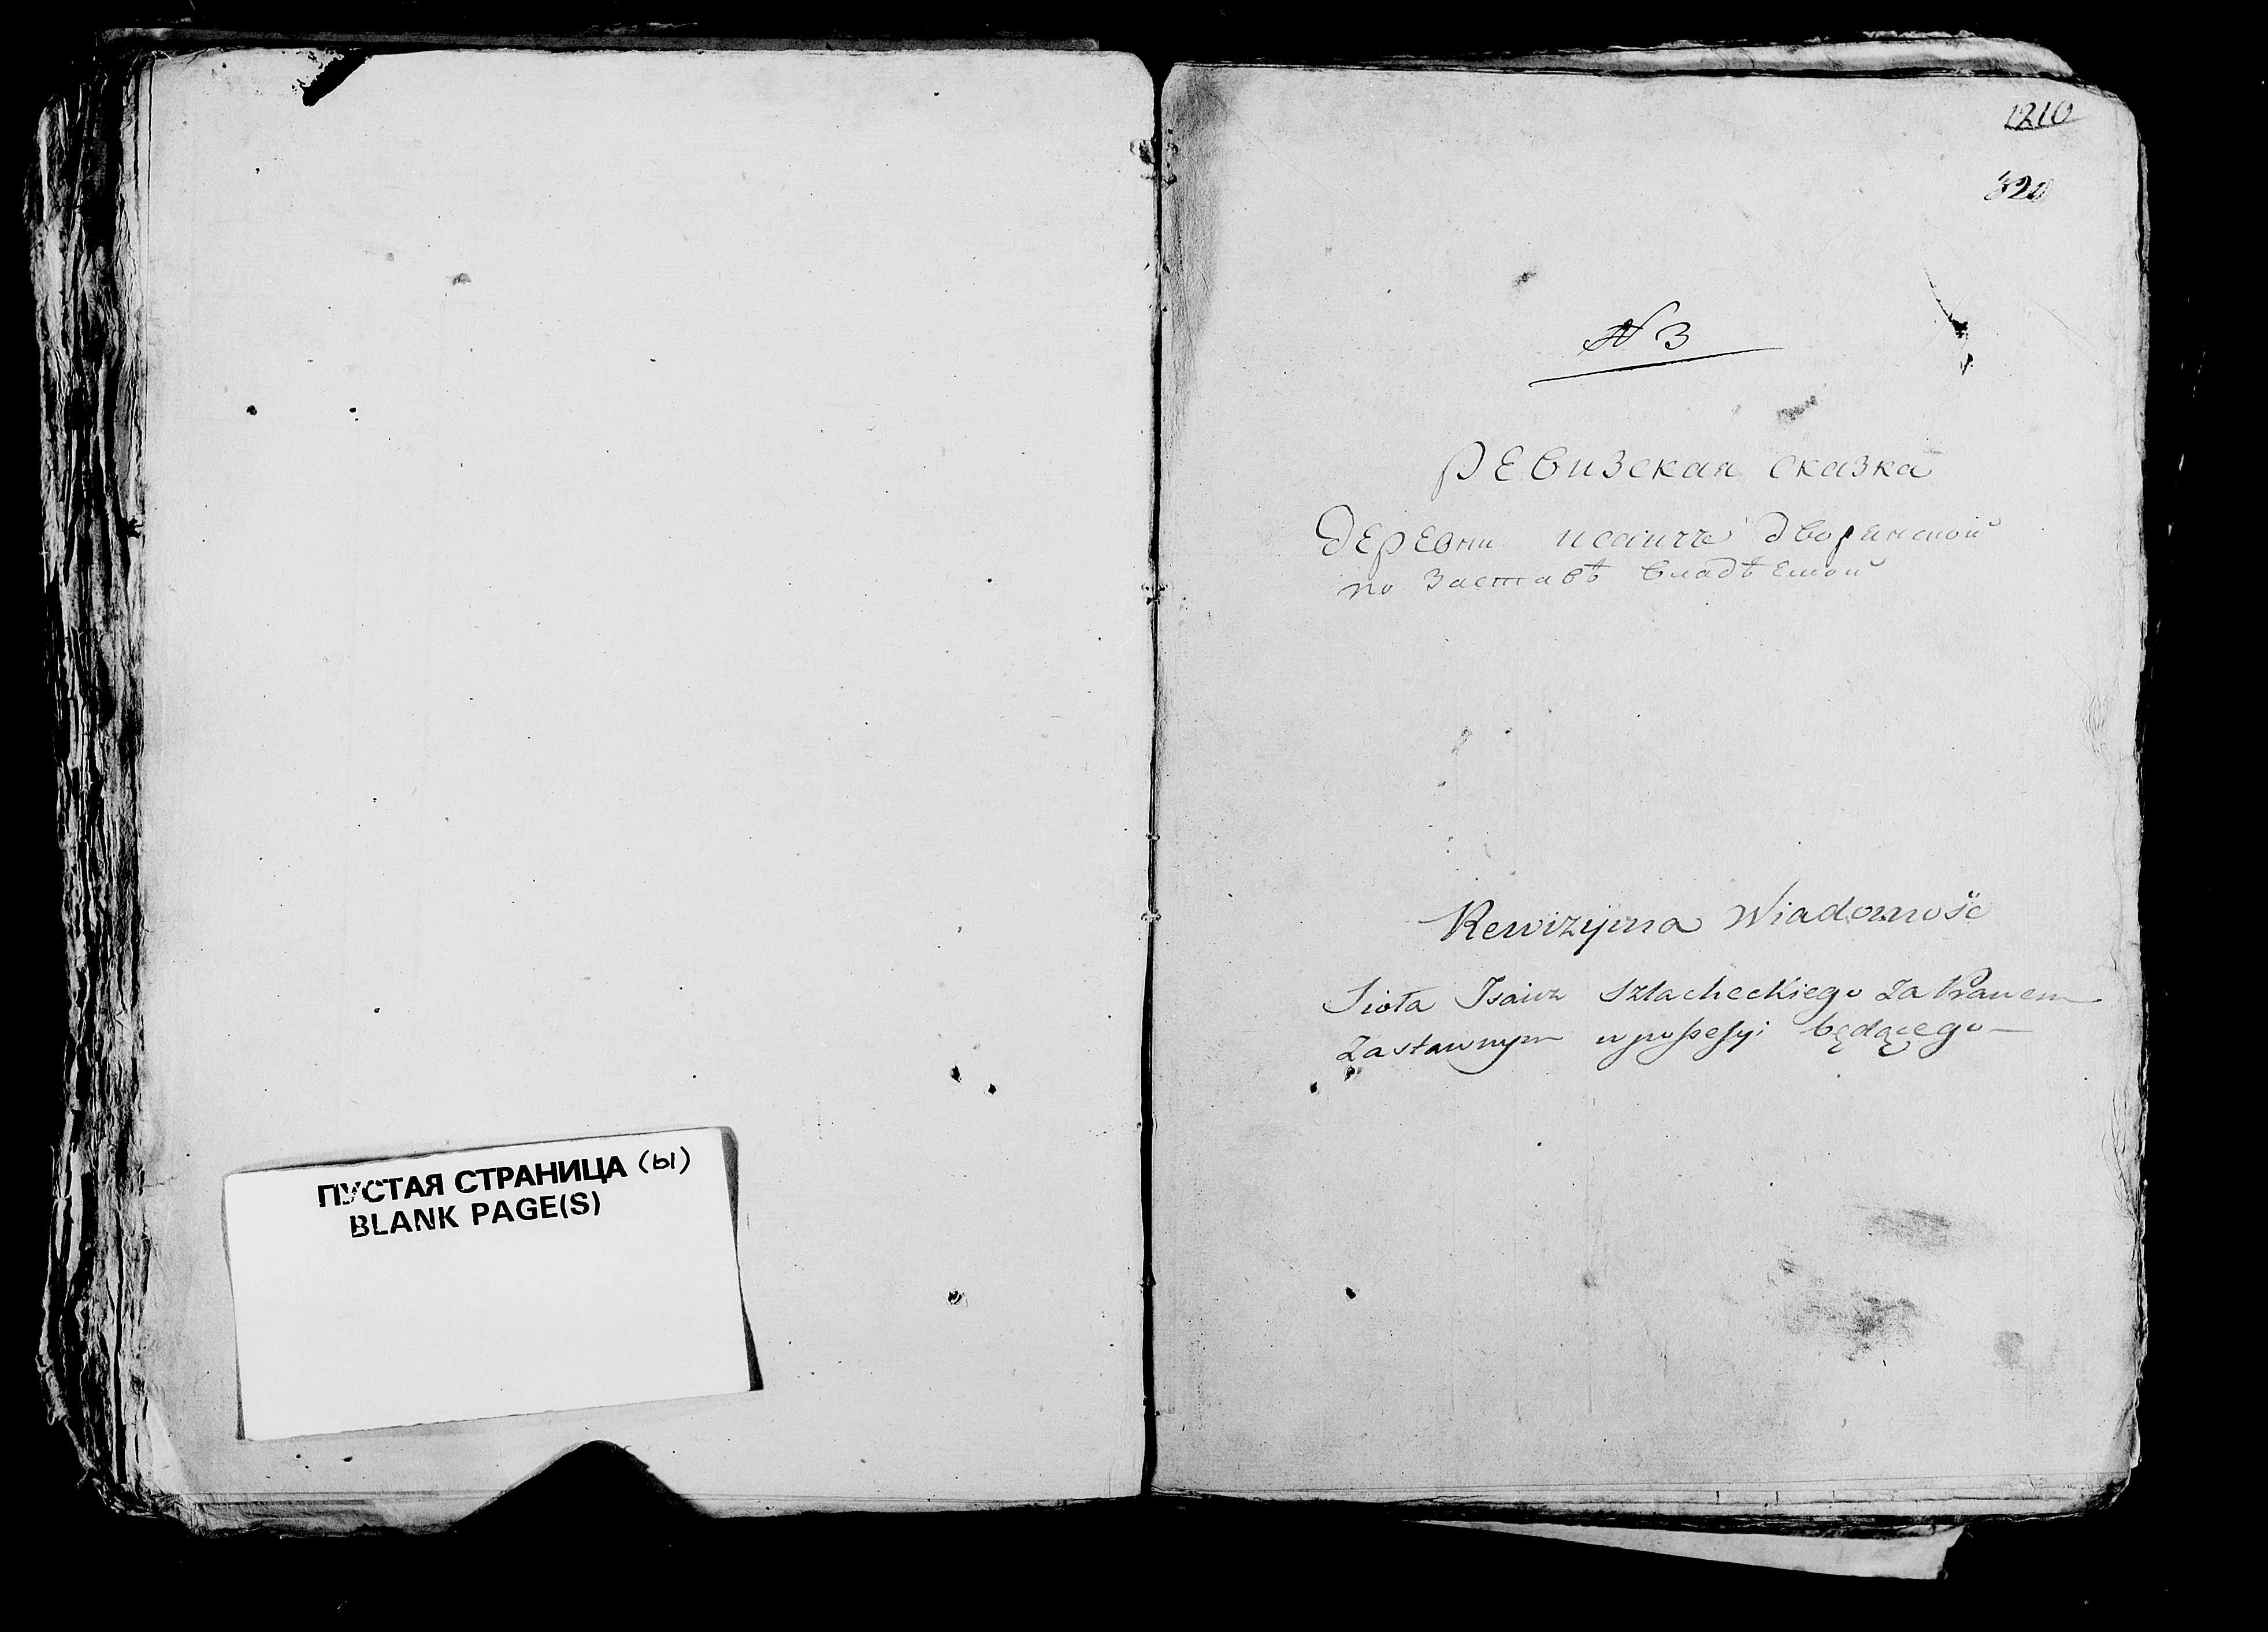 ПУСТАЯ СТРАНИЦА (Ы)
BLANK PAGE(S)
1210
820
N 3
РЕвизская сказка
ДЕрЕвни исаичъ дворянской
по заставѣ владѣемой
Rewizyjna Wiadomość
Sioła Isaicz Szlacheckiego za Prawem
Zastawnym w possessyi będącego